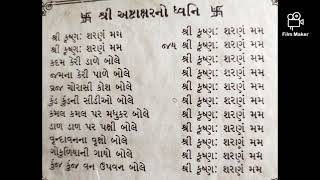 卐 શ્રી અષ્ટાક્ષરનો ધ્વનિ 卐
શ્રી કૃષ્ણઃ શરણં મમ જય શ્રી કૃષ્ણઃ શરણં મમ
કદમ કેરી ડાળે બોલે શ્રી કૃષ્ણઃ શરણં મમ
જમના કેરી પાળે બોલે શ્રી કૃષ્ણઃ શરણં મમ
વ્રજ ચોરાસી કોશ બોલે શ્રી કૃષ્ણઃ શરણં મમ
કુંડ કુંડની સીડીઓ બોલે શ્રી કૃષ્ણઃ શરણં મમ
કમલ કમલ પર મધુકર બોલે શ્રી કૃષ્ણઃ શરણં મમ
ડાળ ડાળ પર પક્ષી બોલે શ્રી કૃષ્ણઃ શરણં મમ
વૃન્દાવનના વૃક્ષો બોલે શ્રી કૃષ્ણઃ શરણં મમ
ગોકુળિયાની ગાયો બોલે શ્રી કૃષ્ણઃ શરણં મમ
કુંજ કુંજ વન ઉપવન બોલે શ્રી કૃષ્ણઃ શરણં મમ
Film Maker